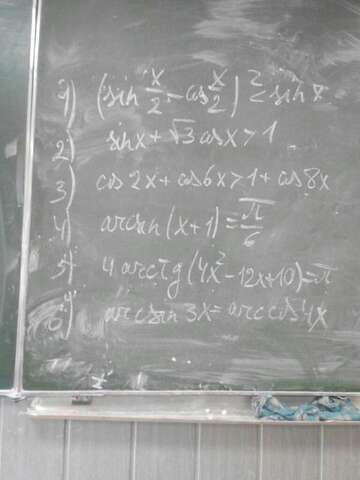 1) (sin x/2 - cos x/2)² ≥ sin x
2) sinx + √3 cosx > 1
3) cos 2x + cos6x > 1 + cos 8x
4) arcsin (x+1) = π/6
5) 4 arctg (4x² - 12x + 10) = π
6) arcsin 3x = arccos 4x